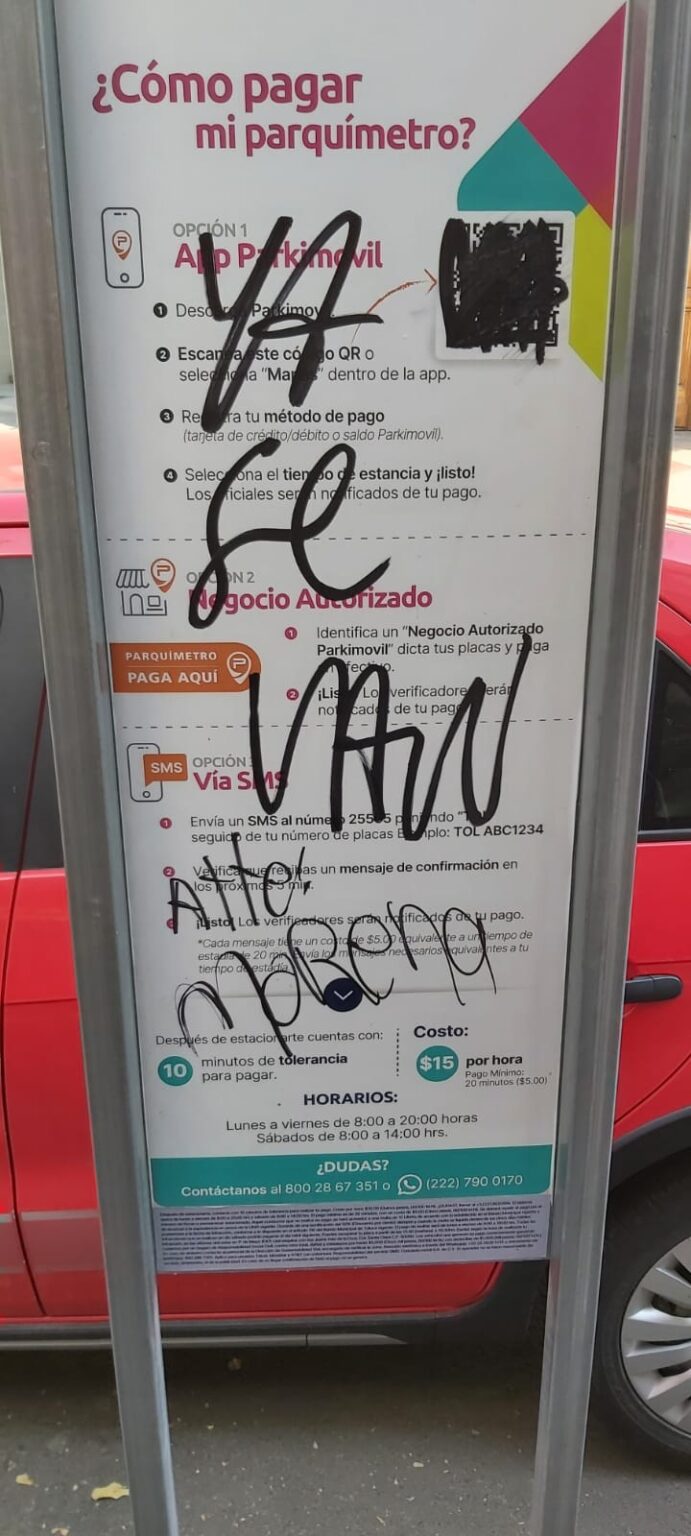 ¿Cómo pagar
mi parquímetro?
OPCIÓN 1
App Parkimovil
YA
1 Parkimov
2 Escan este código QR o
"Ma " dentro de la app.
3 Re ra tu método de pago
(tarjeta de crédito/débito o saldo Parkimovil).
4 Selec ona el tiempo de estancia y ¡listo!
Los ficiales ser n notificados de tu pago.
Se
OPCIÓN 2
Negocio Autorizado
PARQUÍMETRO
PAGA AQUÍ
1 Identifica un "Negocio Autorizado
Parkimovil" dicta tus placas y paga
efectivo.
2 ¡List Lo verificadore erán
not cados de tu pag
VAN
SMS
OPCIÓN
Vía SMS
1 Envía un SMS al número 255 5 p ndo "T
seguido de tu número de placas E mplo: TOL ABC1234
Atte:
2 Verifica que recibas un mensaje de confirmación en
los próximos 5 min.
¡Listo! Los verificadores serán notificados de tu pago.
*Cada mensaje tiene un costo de $5.00 equivalente a un tiempo de
estadía de 20 min. Envía los mensajes necesarios equivalentes a tu
tiempo de estadía.
MoRena
Después de estacionarte cuentas con:
10 minutos de tolerancia
para pagar.
Costo:
$15 por hora
Pago Mínimo:
20 minutos ($5.00)
HORARIOS:
Lunes a viernes de 8:00 a 20:00 horas
Sábados de 8:00 a 14:00 hrs.
¿DUDAS?
Contáctanos al 800 28 67 351 o (222) 790 0170